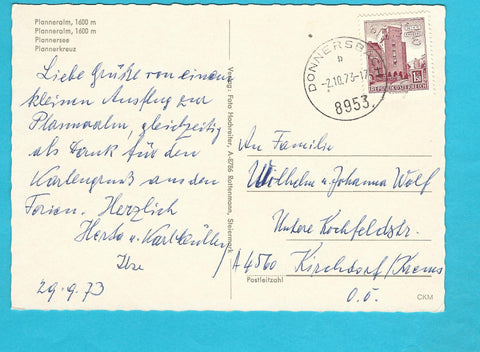 Planneralm, 1600 m
Planneralm, 1600 m
Plannersee
Plannerkreuz
Liebe Grüße von einem
kleinen Ausflug zur
Planneralm, gleichzeitig
als Dank für den
Kartengruß aus den
Ferien. Herzlich
Herta u. Karl
Ilse
29.9.73
Verlag: Foto Hochreiter, A-8786 Rottenmann, Steiermark
DONNERSBACH
b
-2.10.73-17
8953
REPUBLIK ÖSTERREICH
An Familie
Wilhelm u. Johanna Wolf
Untere Kochfeldstr.
A 4560 Kirchdorf/Krems
Postleitzahl
O.Ö.
CKM